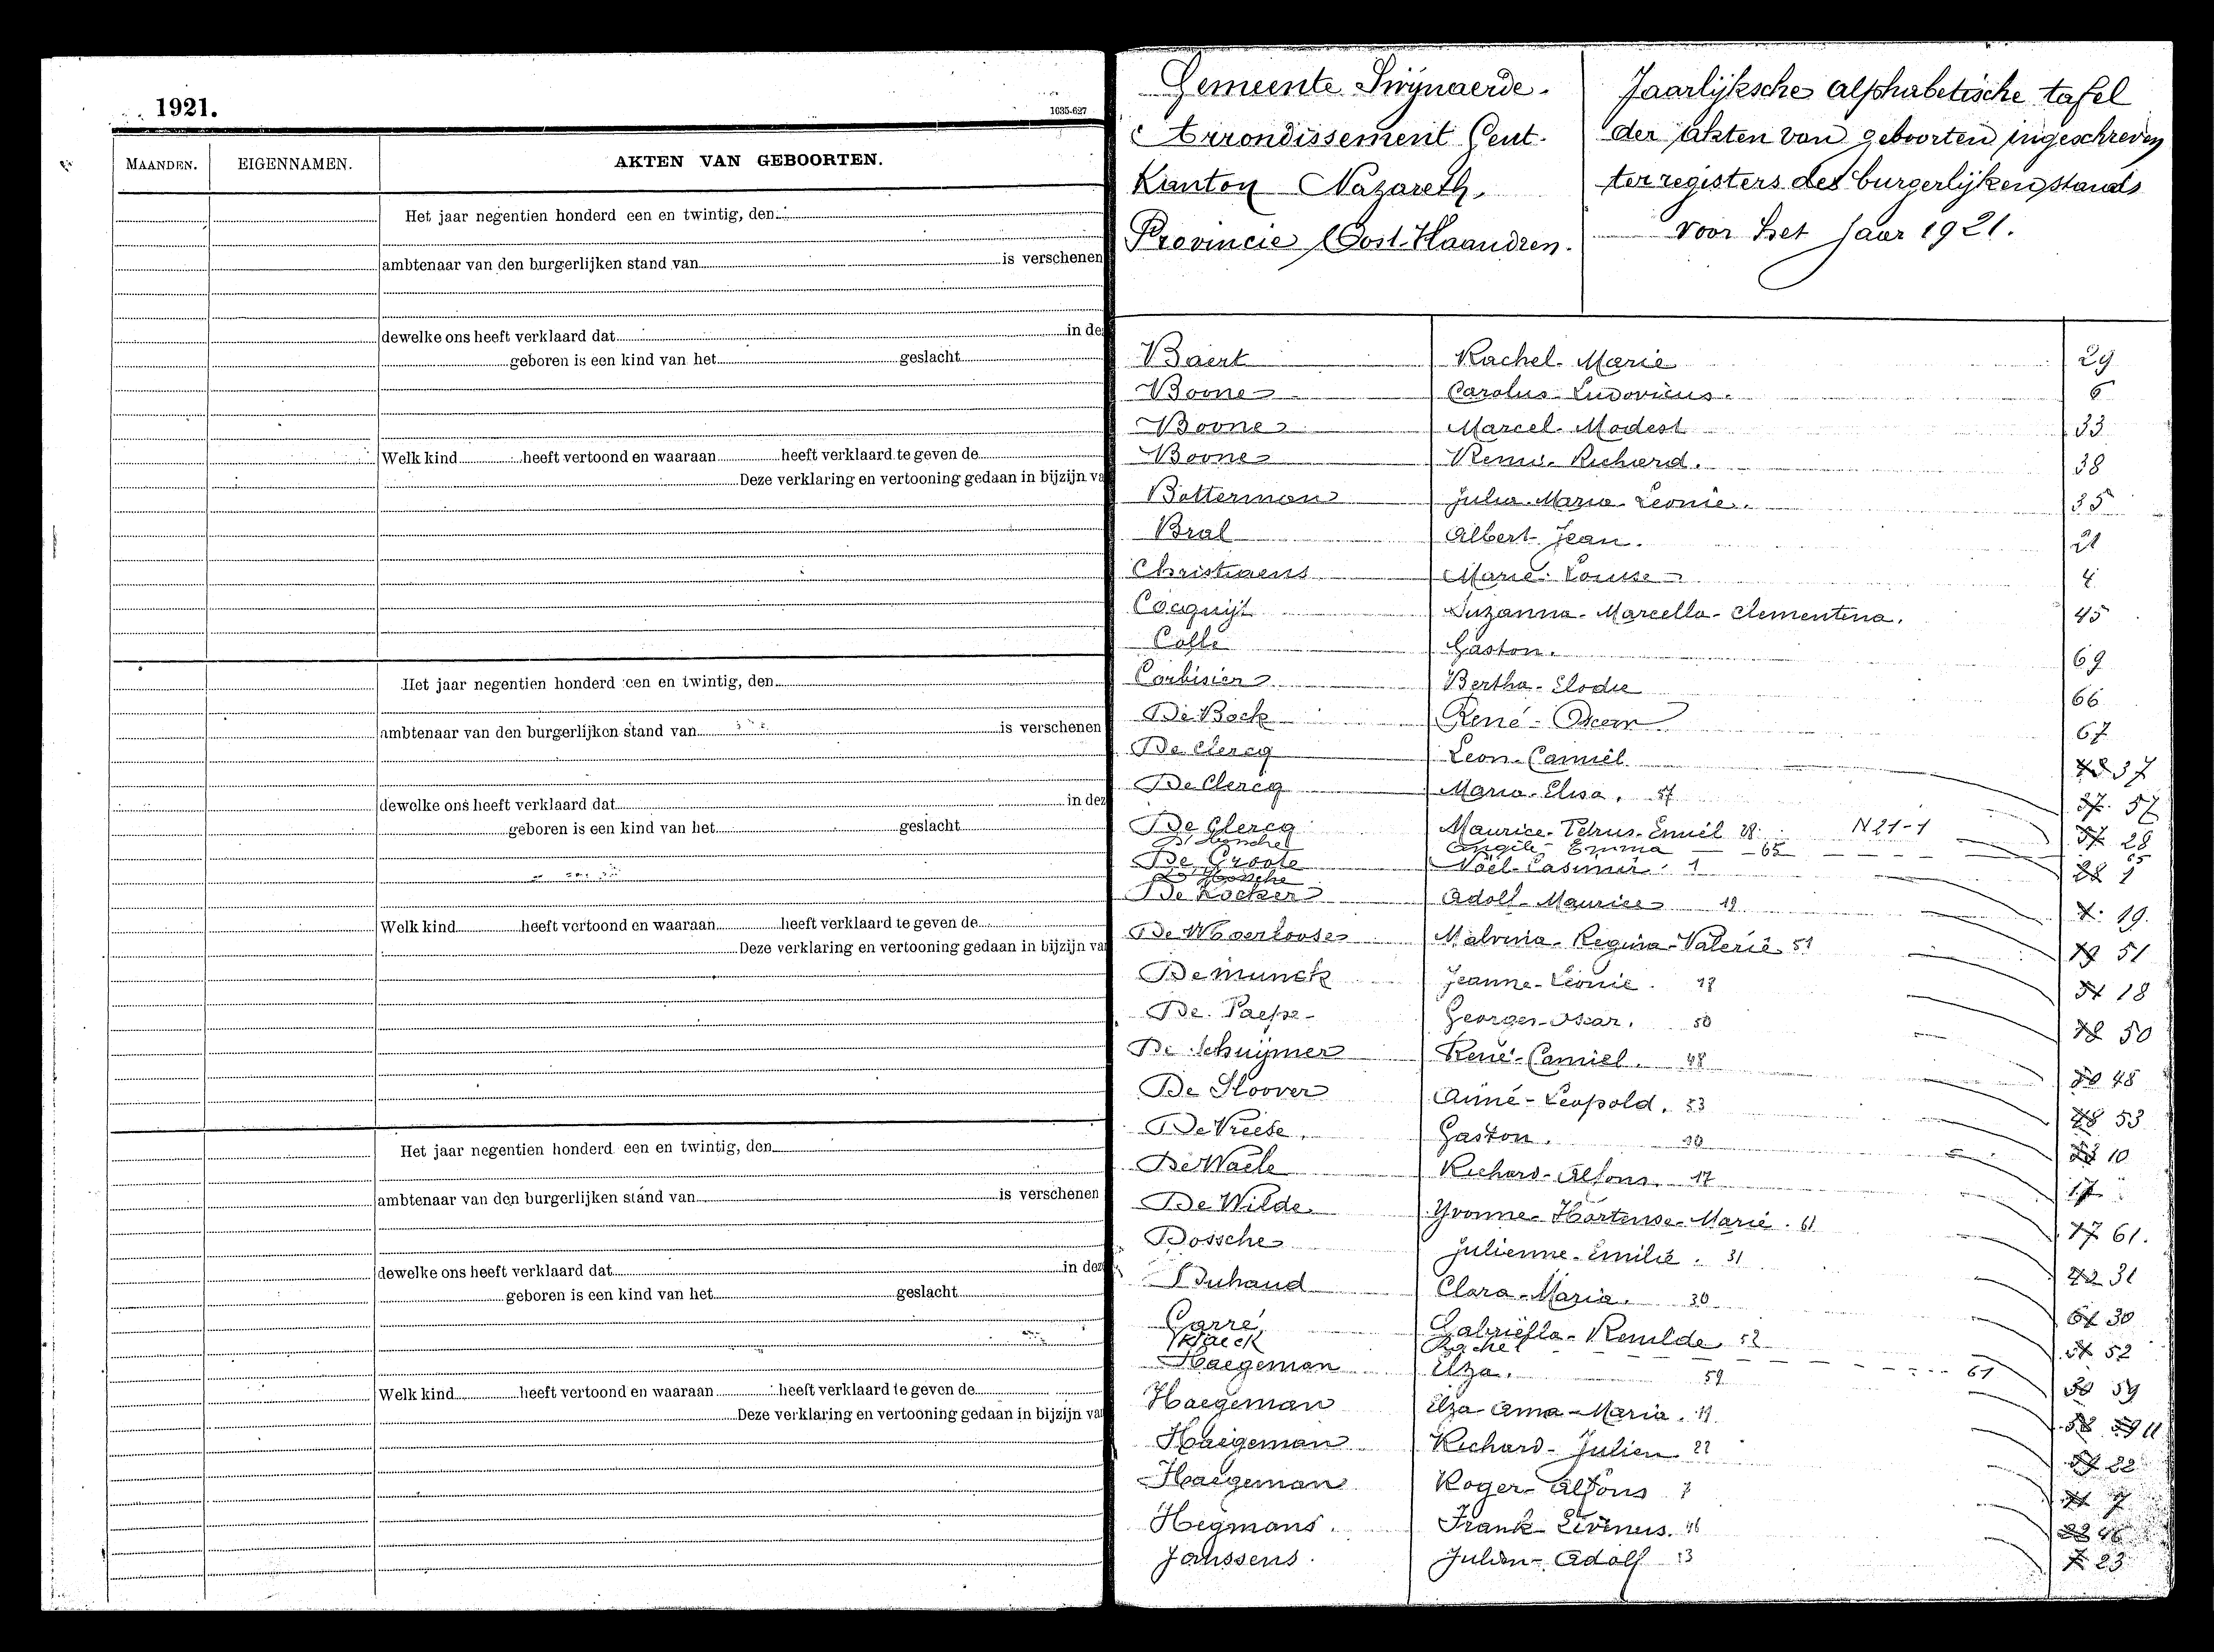 1921.
1635-627
MAANDEN. EIGENNAMEN. AKTEN VAN GEBOORTEN.
Het jaar negentien honderd een en twintig, den
ambtenaar van den burgerlijken stand van is verschenen
dewelke ons heeft verklaard dat in de
geboren is een kind van het geslacht
Welk kind heeft vertoond en waaraan heeft verklaard te geven de
Deze verklaring en vertooning gedaan in bijzijn va
Het jaar negentien honderd een en twintig, den
ambtenaar van den burgerlijken stand van is verschenen
dewelke ons heeft verklaard dat in dez
geboren is een kind van het geslacht
Welk kind heeft vertoond en waaraan heeft verklaard te geven de
Deze verklaring en vertooning gedaan in bijzijn va
Het jaar negentien honderd een en twintig, den
ambtenaar van den burgerlijken stand van is verschenen
dewelke ons heeft verklaard dat in dez
geboren is een kind van het geslacht
Welk kind heeft vertoond en waaraan heeft verklaard te geven de
Deze verklaring en vertooning gedaan in bijzijn va
Gemeente Swijnaerde.
Arrondissement Gent.
Kanton Nazareth,
Provincie Oost-Vlaandren.
Jaarlijksche alphabetische tafel
der akten van geboorten ingeschreven
ter registers des burgerlijken stands
voor het jaar 1921.
Baert Rachel-Marie 29
Boone Carolus-Ludovicus. 6
Boone Marcel-Modest 33
Boone Remi-Richard. 38
Botterman Julia-Maria-Leonie. 35
Bral Albert-Jean. 21
Christiaens Marie-Louise 4
Cocquijt Suzanna-Marcella-Clementina. 45
Colle Gaston. 69
Corbisier Bertha-Elodie 66
De Bock René-Oscar 67
De Clercq Leon-Camiel 37
De Clercq Maria-Elisa. 57 57
De Clercq Maurice-Petrus-Emiel 28. N 21-1 28
Emma 65 65
De Groote Noël-Casimir. 1 1
De Kocker Adolf-Maurice 19 19
De Moerloose Malvina-Regina-Valerie 51 51
De Munck Jeanne-Leonie. 18 18
De Paepe Georges-Oscar. 50 50
De Schuijmer René-Camiel. 48 48
De Sloover Aimé-Leopold. 53 53
De Vreese. Gaston. 10 10
De Waele Richard-Alfons. 17 17
De Wilde Yvonne-Hortense-Marie. 61 61.
Dossche Julienne-Emilie. 31 31
Duhaud Clara-Maria. 30 30
Carré Gabriella-Remilde 52 52
Rachel 61
Haegeman Elza. 59 59
Haegeman Elza-Anna-Maria. 11 11
Haegeman Richard-Julien 22 22
Haegeman Roger-Alfons 7 7
Hegmans. Frank-Livinus. 46 46
Janssens. Julien-Adolf 23